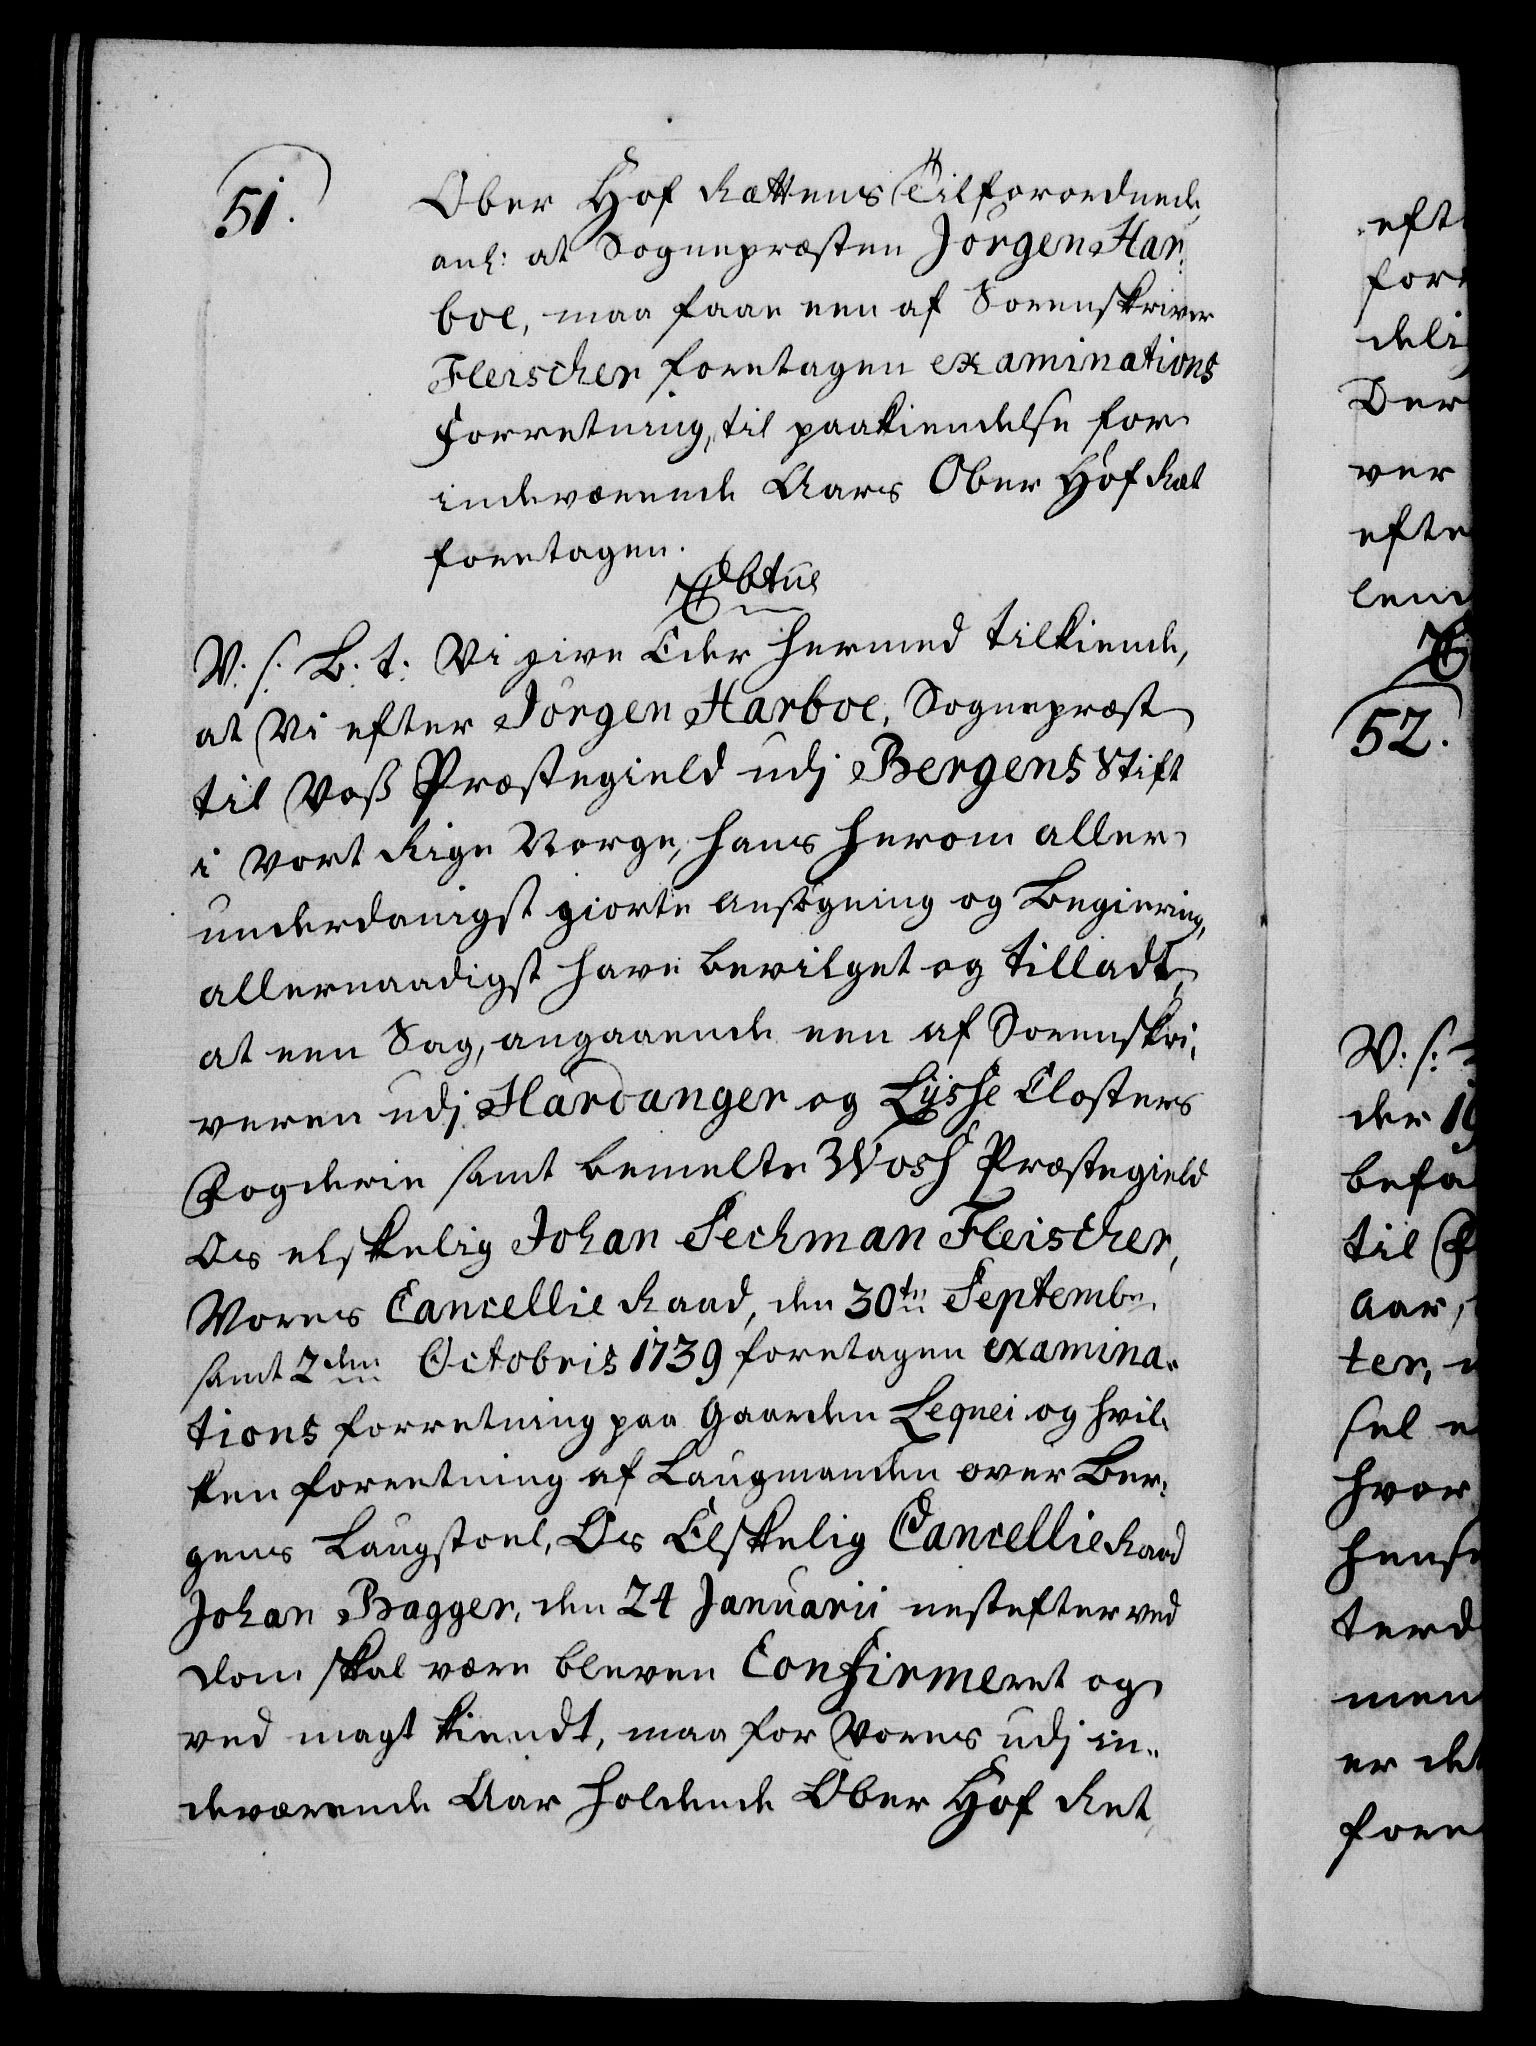 51.
Ober Hof Rettens Tilforordnede,
anl: at Sognepræsten Jörgen Har-
boe, maa faae een af Sorenskriver
Fleischer foretagen examinations
Forretning, til paakiendelse for
indeværende Aars Ober Hof Ræt
foretagen.
V. S. B. t: Vi give Eder hermed tilkiende,
at Vi efter Jörgen Harboe, Sognepræst
til Voss Præstegield udj Bergens Stift
i Vort Rige Norge, hans herom aller
underdanigst giorte Ansögning og Begiering,
allernaadigst have bevilget og tilladt,
at een Sag, angaaende een af Sorenskri-
veren udj Hardanger og Lysse Closters
Fogderie samt bemelte Woss Præstegield
Os elskelig Johan Sechman Fleischer,
Vores Cancellie Raad, den 30te Septembr.
samt 2den Octobris 1739 foretagen examina-
tions forretning paa Gaarden Leqnei og hvil-
ken forretning af Laugmanden over Ber-
gens Laugstoel, Os Elskelig Cancellie Raad
Johan Bagger, den 24 Januarii nestefter ved
Dom skal være bleven Confirmeret og
ved magt kiendt, maa for Vores udj in-
deværende Aar holdende Ober Hof Ret,
eft
for
deli
Der
ver
efte
lem
52.
V. S.
der 19
befa
til
Aar,
ter,
sel
hvor
hense
terd
men
er det
fore